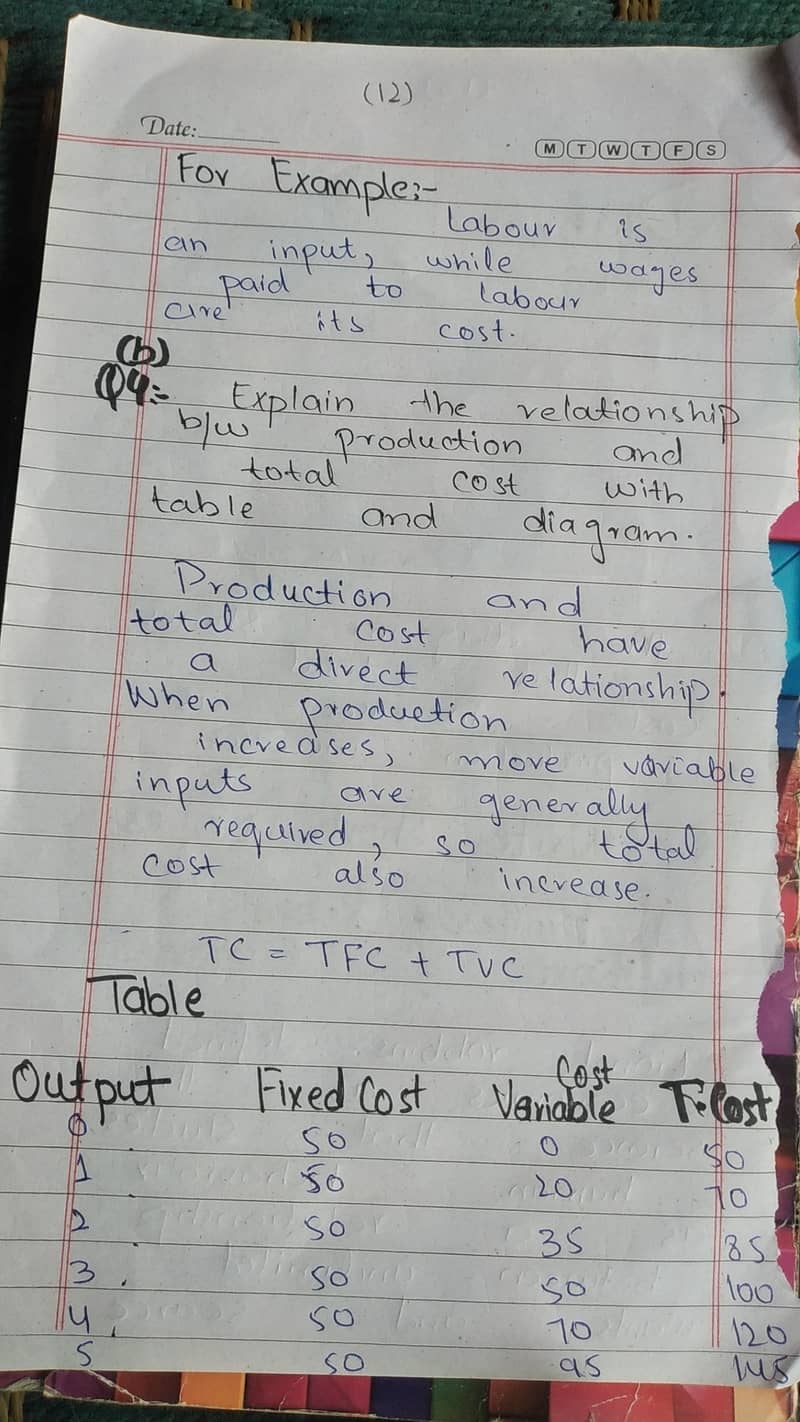 (12)
Date:
M T W T F S
For Example:-
Labour is
an input, while wages
paid to labour
are its cost.
(b)
Q4:- Explain the relationship
b/w production and
total cost with
table and diagram.
Production and
total cost have
a direct relationship.
When production
increases, more variable
inputs are generally
required, so total
cost also increase.
TC = TFC + TVC
Table
Output Fixed Cost Variable Cost T.Cost
0 50 0 50
1 50 20 70
2 50 35 85
3 50 50 100
4 50 70 120
5 50 95 145